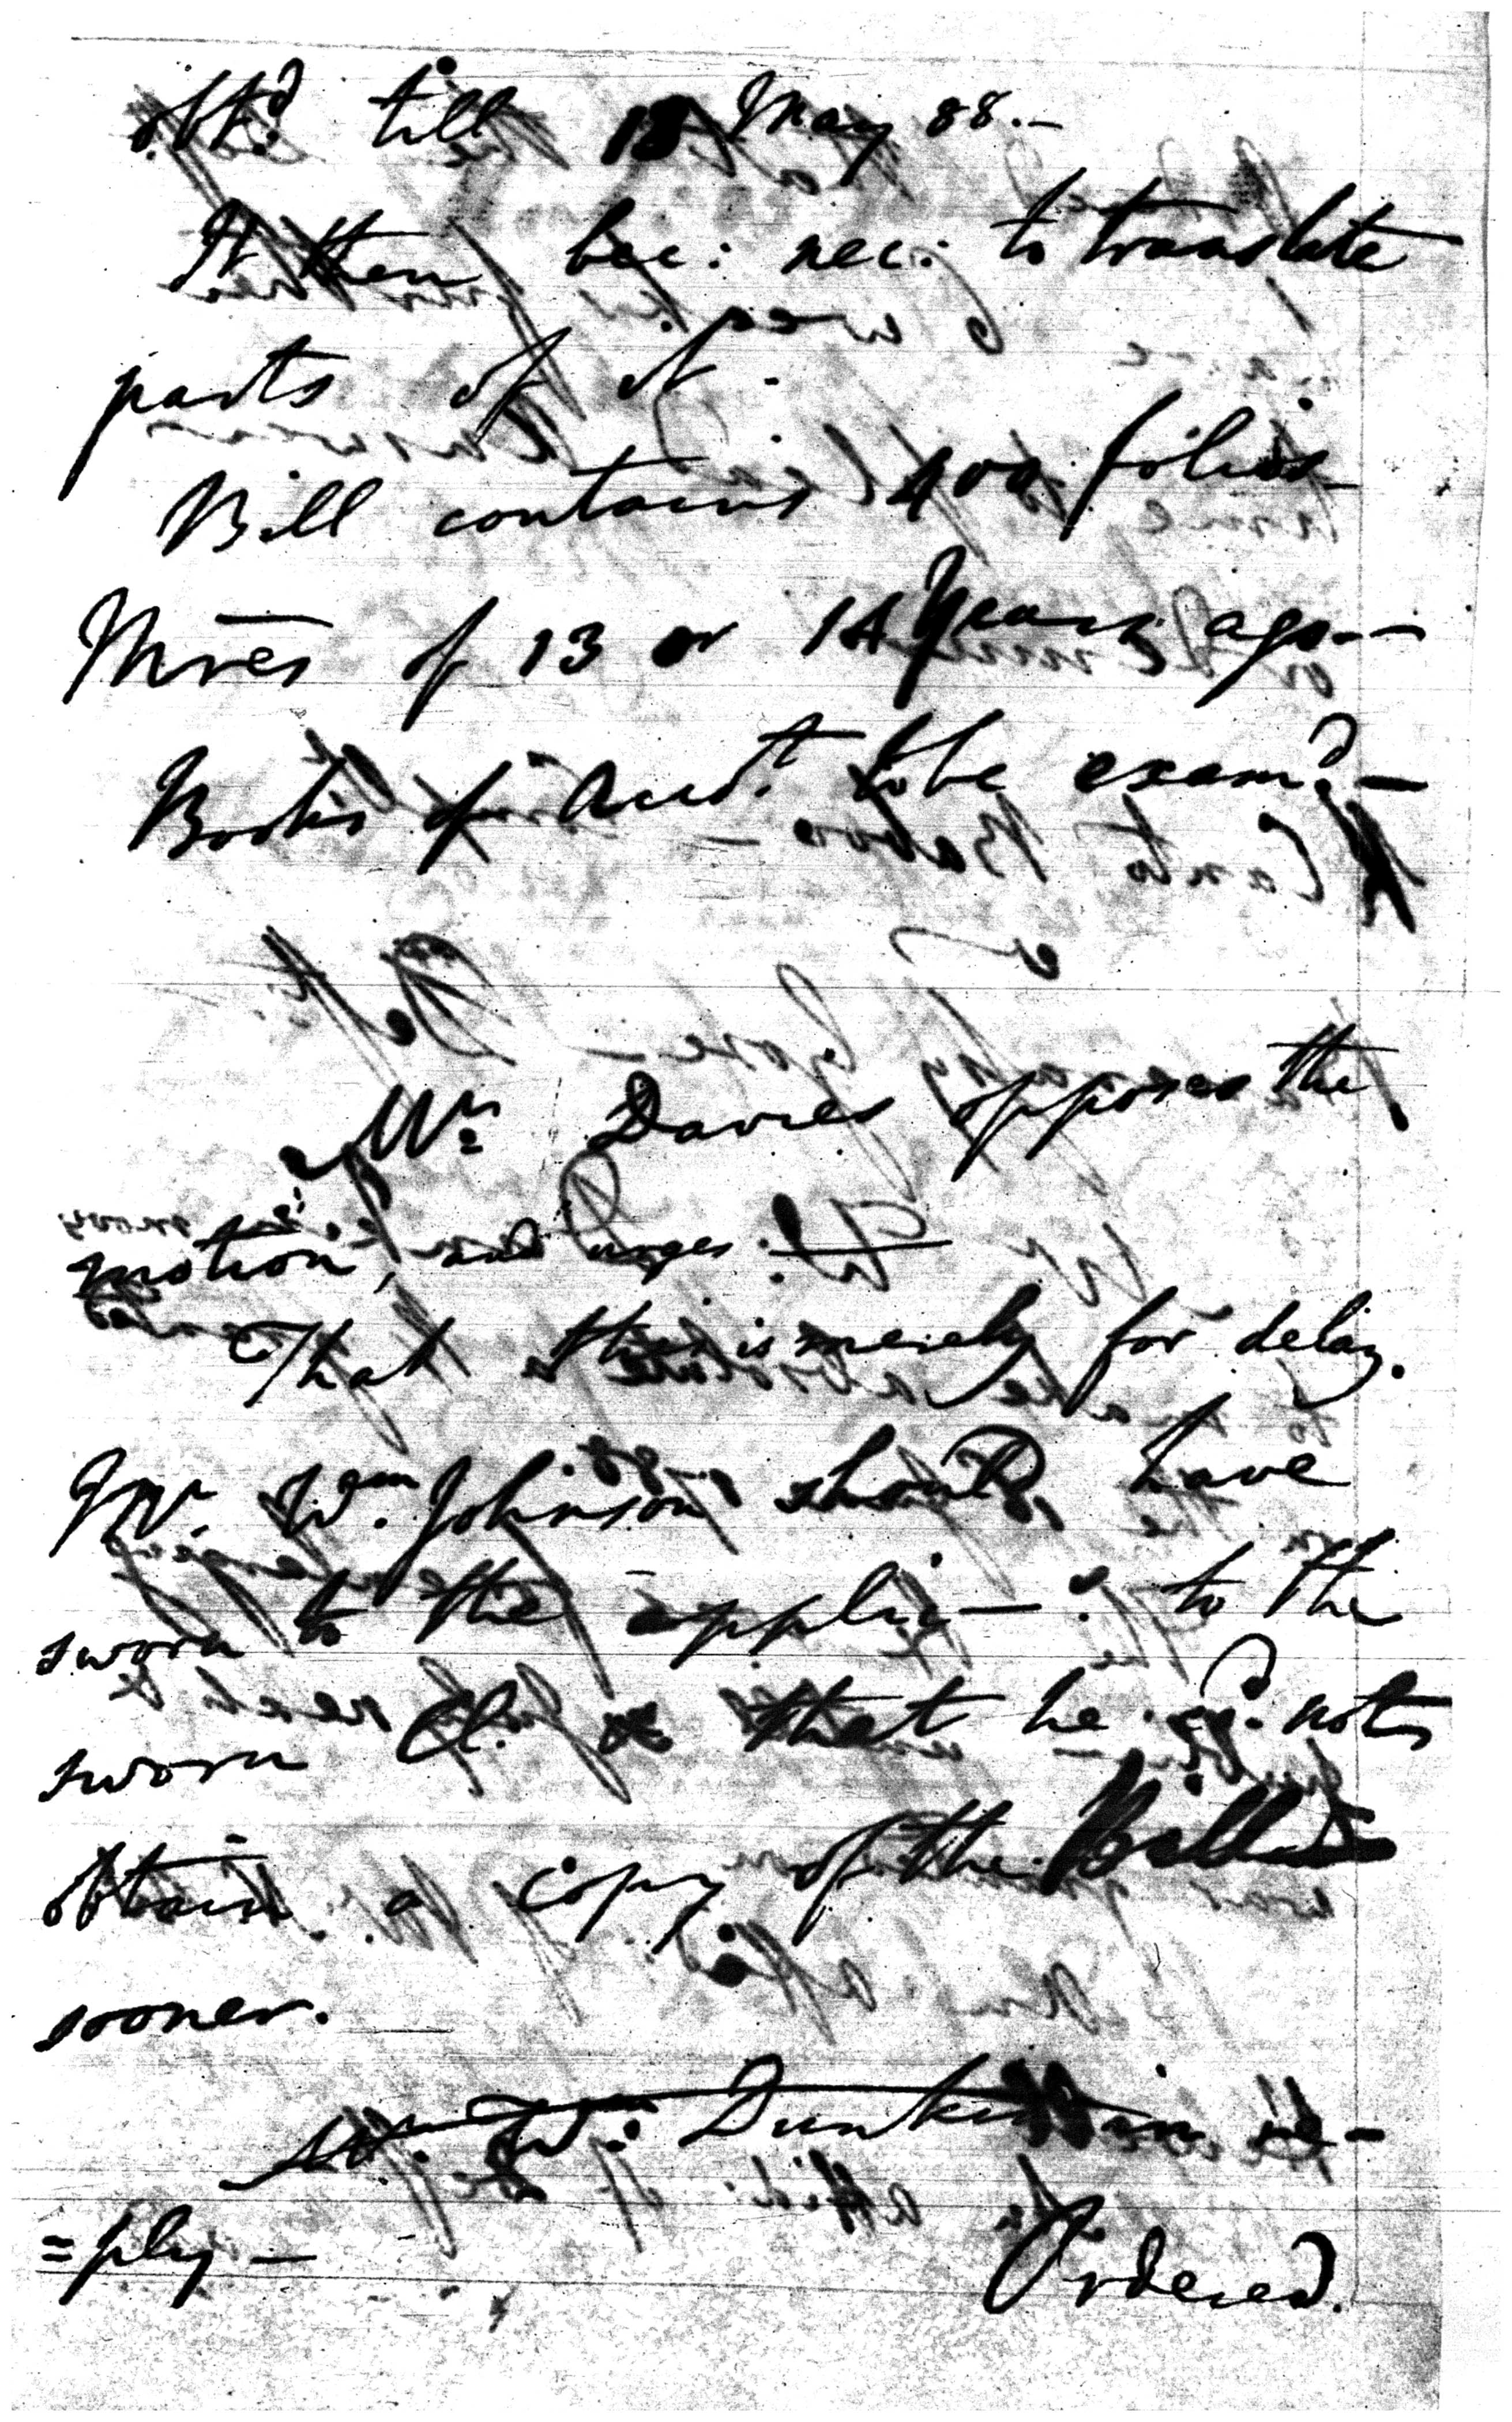 obt.d till 13 May 88.—
It then bec: nec: to translate
parts of it.
Bill contains 400 folios
of 13 or 14 Years ago—
Books of Acco.t to be exam.d —
Mr Davies opposes the
motion, and urges
That this is merely for delay.
Mr. Wm. Johnson should have
sworn to the applic—: to the
sworn Cl. & that he cd. not
obtain a copy of the Bill
sooner.
Mr. W: Dunkin in re-
=ply —
Ordered.